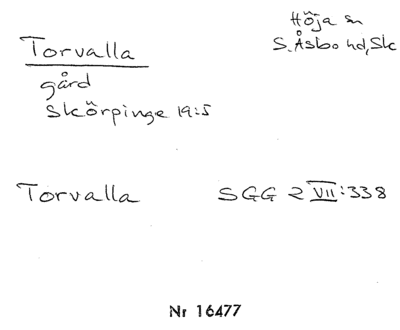 Höja sn
S. Åsbo hd, Sk
Torvalla
gård
Skörpinge 19:5
Torvalla SGG 2 VII:338
Nr 16477